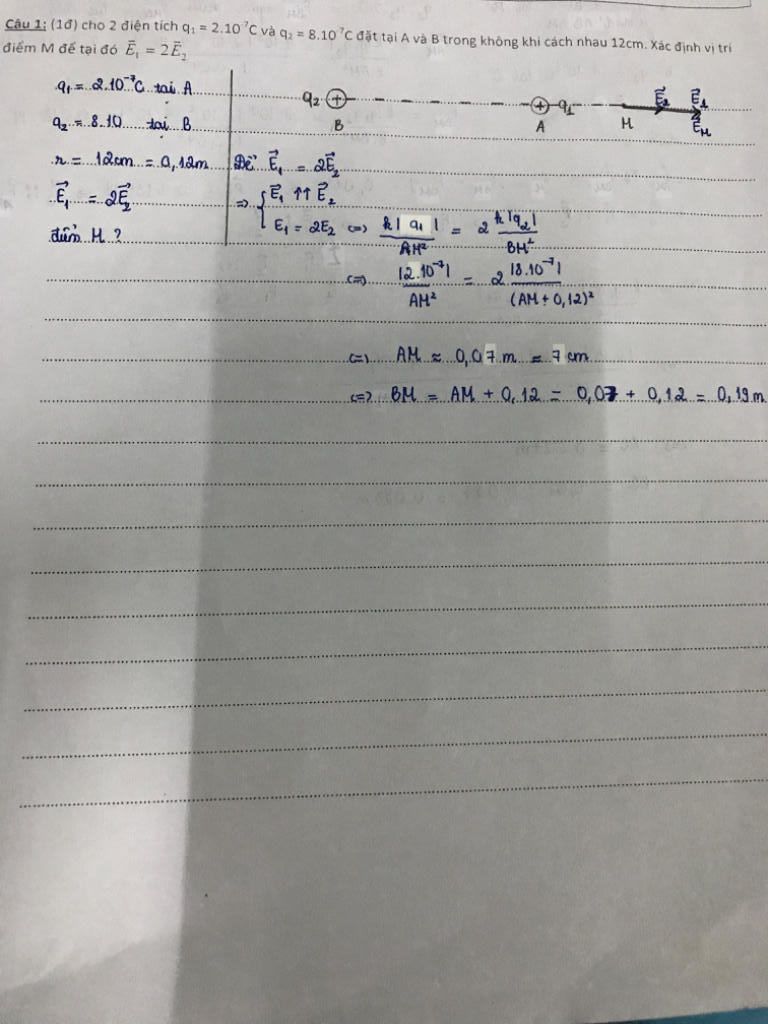 Câu 1: (1đ) cho 2 điện tích q₁ = 2.10⁻⁷C và q₂ = 8.10⁻⁷C đặt tại A và B trong không khí cách nhau 12cm. Xác định vị trí
điểm M để tại đó E⃗₁ = 2E⃗₂
q₁ = 2.10⁻⁷C tại A
q₂ = 8.10 tại B
r = 12cm = 0,12m
E⃗₁ = 2E⃗₂
điểm M ?
q₂ + + q₁ E⃗₂ E⃗₁
B A M E⃗M
Để E⃗₁ = 2E⃗₂
=> { E⃗₁ ↑↑ E⃗₂
E₁ = 2E₂ <=> k|q₁|/AM² = 2 k|q₂|/BM²
<=> |2.10⁻⁷|/AM² = 2 |8.10⁻⁷|/(AM + 0,12)²
<=> AM ≈ 0,07 m = 7 cm
<=> BM = AM + 0,12 = 0,07 + 0,12 = 0,19 m